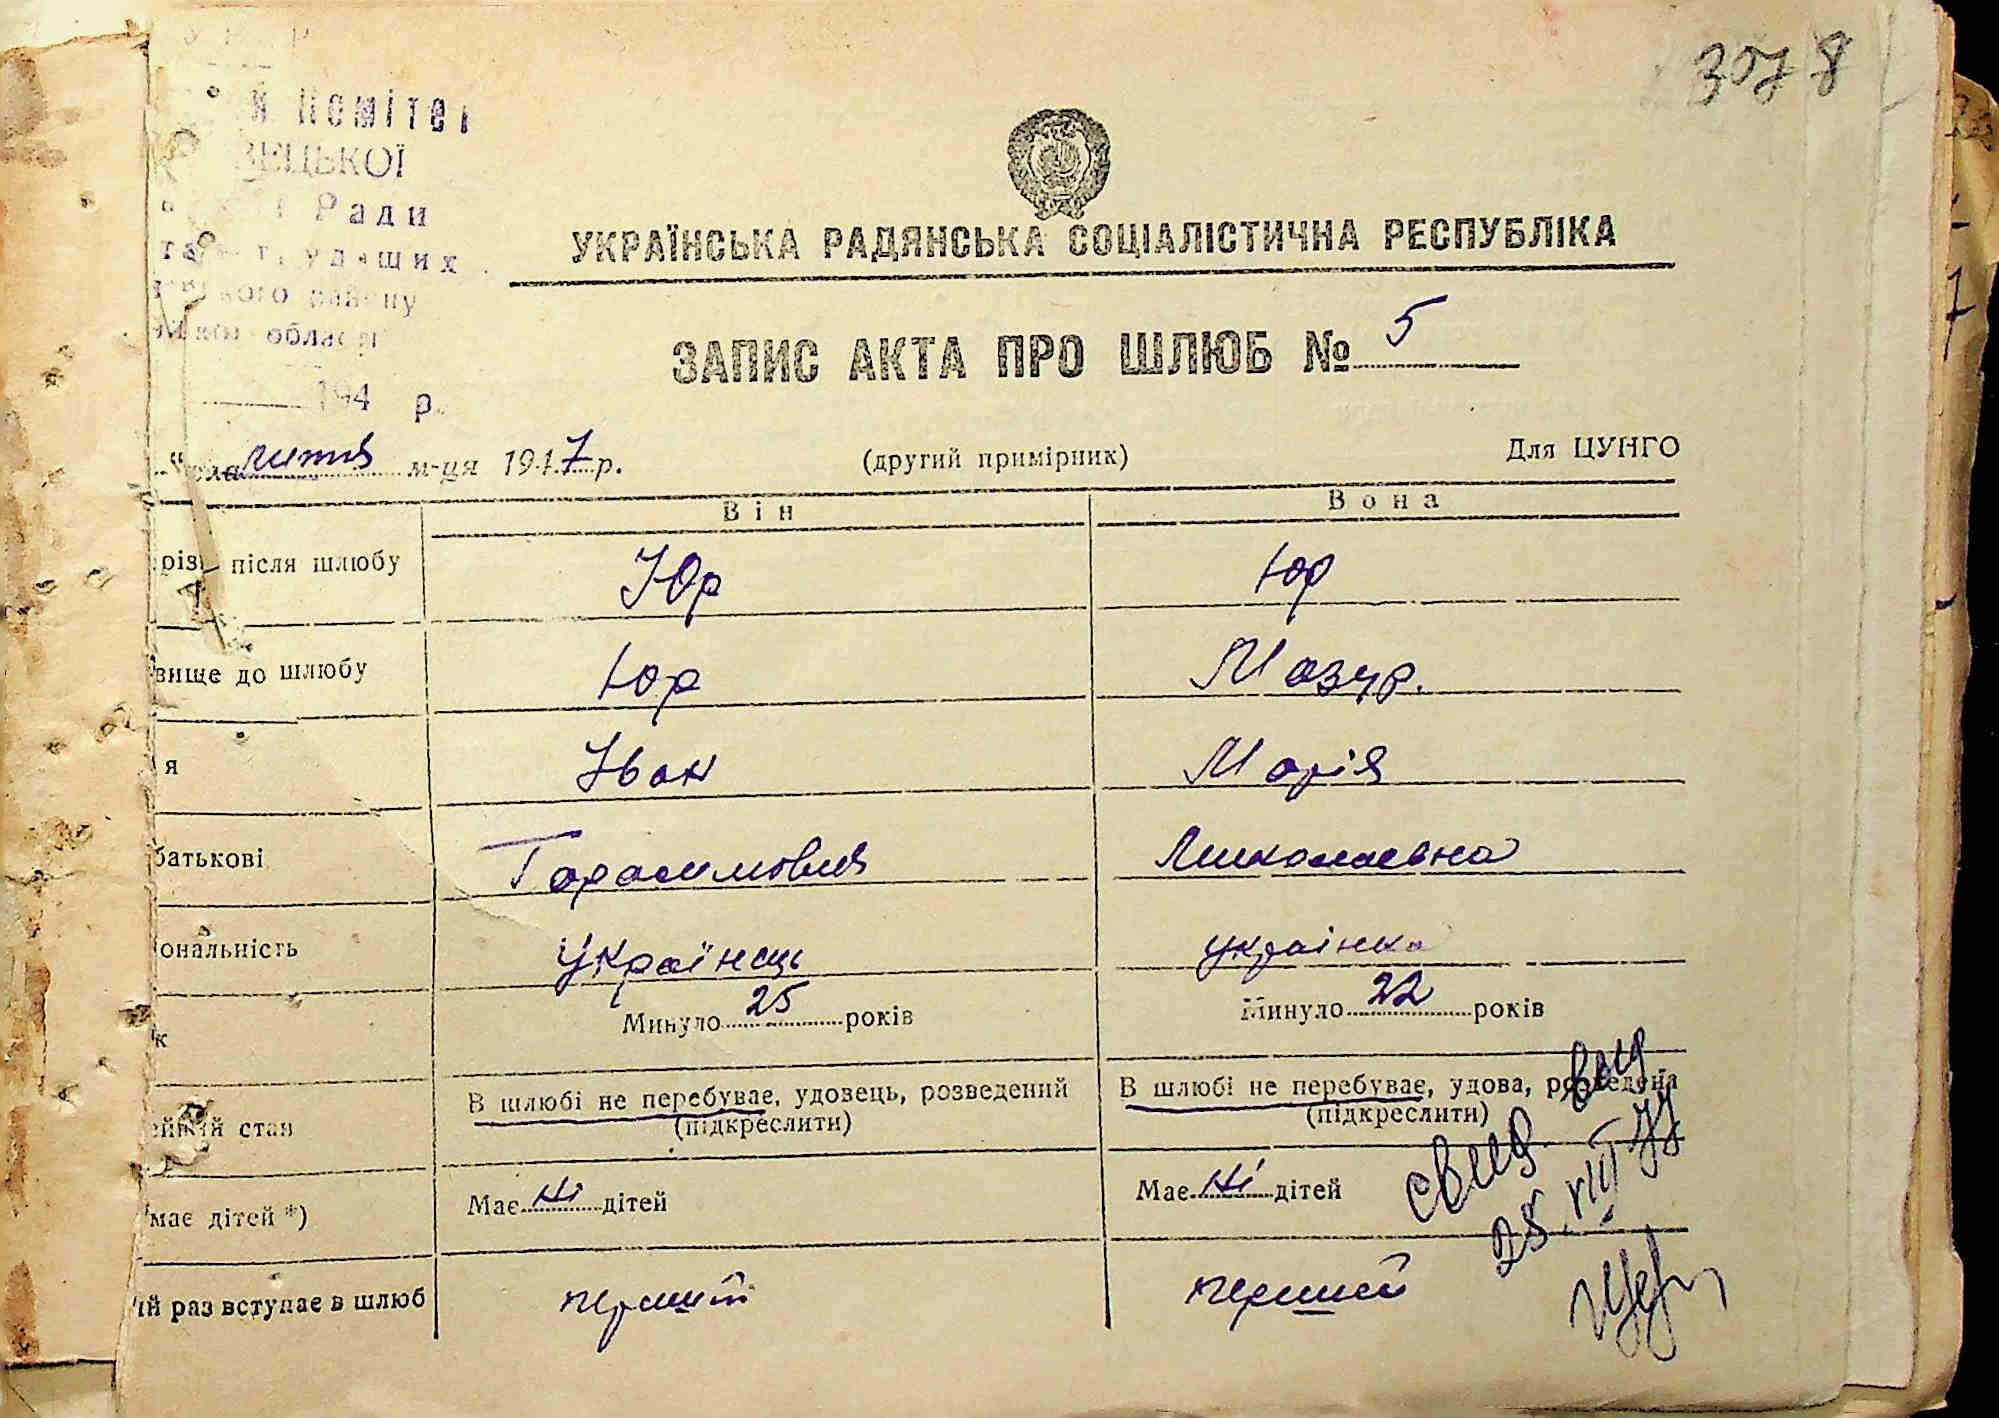 3078
й Комітет
ВЕЦЬКОЇ
Ради
трудящих
району
області
194 р.
УКРАЇНСЬКА РАДЯНСЬКА СОЦІАЛІСТИЧНА РЕСПУБЛІКА
ЗАПИС АКТА ПРО ШЛЮБ № 5
м-ця 1947 р. (другий примірник) Для ЦУНГО
Він Вона
різв. після шлюбу Юр Юр
вище до шлюбу Юр Мазур.
я Іван Марія
батькові Гарасимович Миколаевна
ональність Українець українка
к Минуло 25 років Минуло 22 років
ейний стан В шлюбі не перебуває, удовець, розведений В шлюбі не перебуває, удова, розведена
(підкреслити) (підкреслити)
має дітей *) Має ні дітей Має ні дітей
ий раз вступає в шлюб перший перший
свид. выд
25.VIII 77